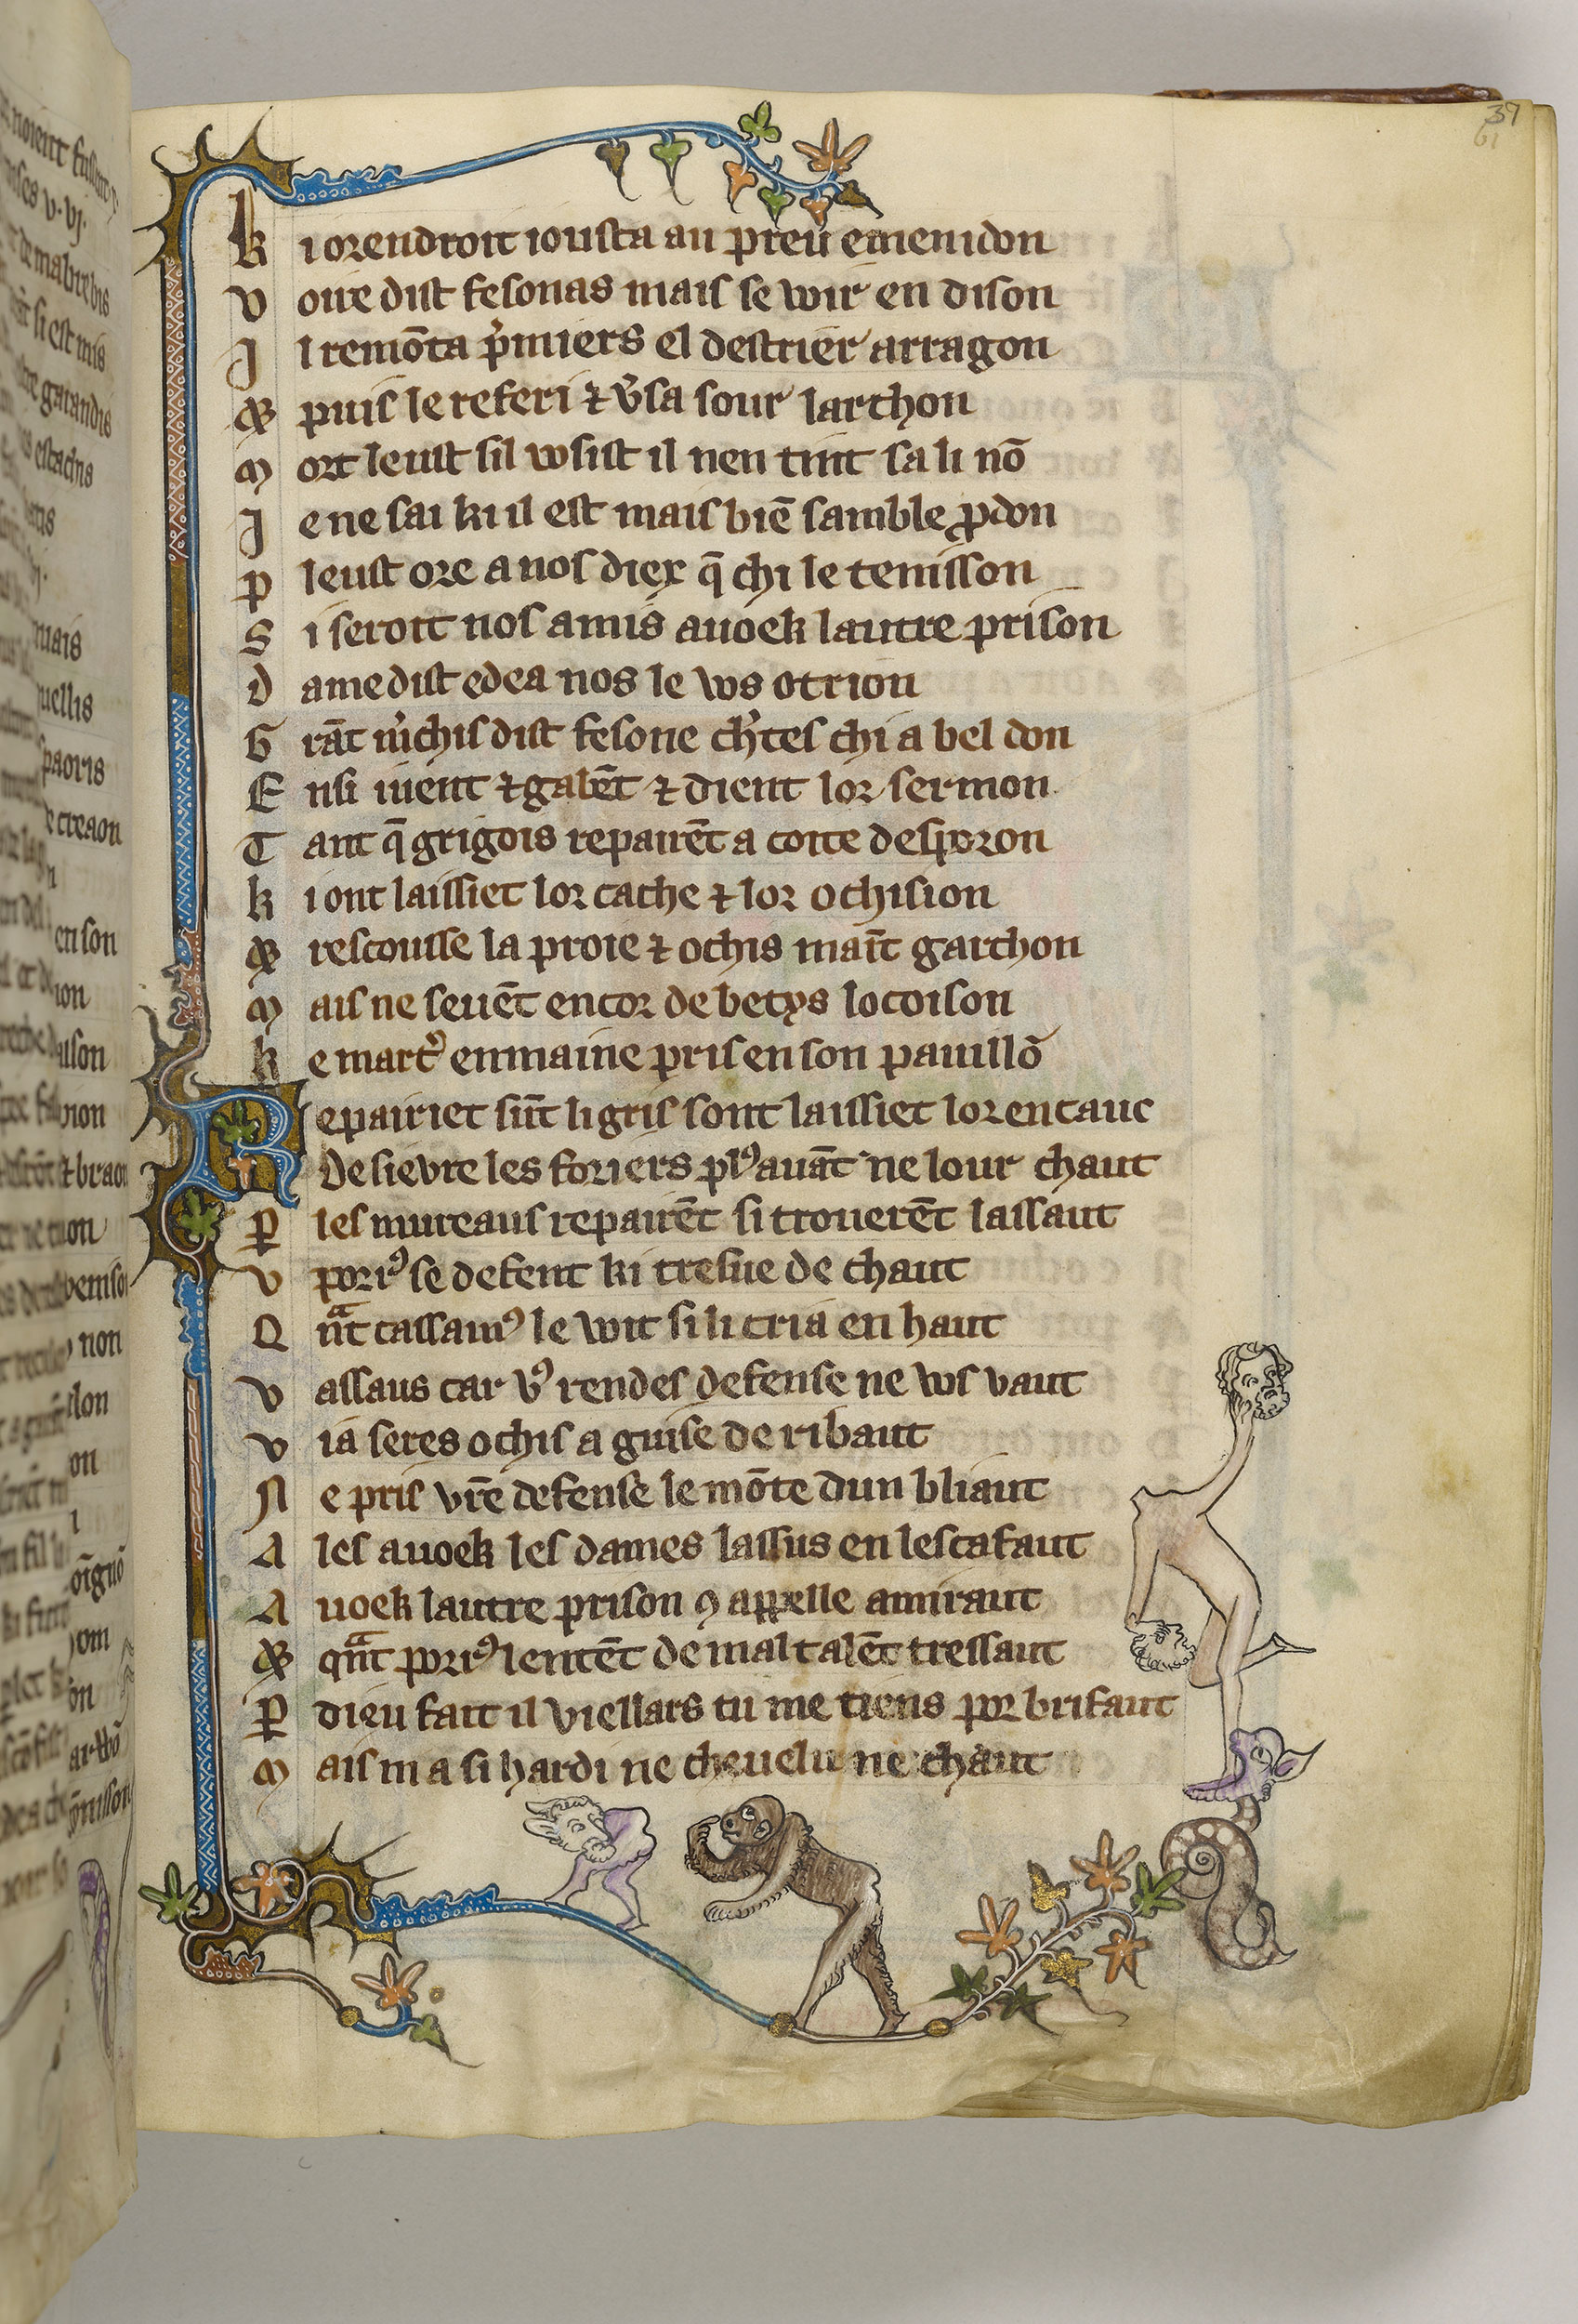 37
61
k iorendroit iousta au preu emenidon
v oire dist fesonas mais se wir en dison
J l remōta p̓miers el destrier arragon
⁊ puis le referi ⁊ v̓sa sour larchon
m ort leust sil wsist il nen tint sa li nō
J e ne sai ki il est mais biē samble ꝓdon
p leust ore a nos diex q̄ chi le tenisson
S i seroit nos amis auoek lautre prison
d ame dist edea nos le ws otrion
G rāt m̓chis dist fesone ch̓tes chi a bel don
E nsi iuent ⁊ gabēt ⁊ dient lor sermon
T ant q̄ grigois repairēt a coite desporon
k i ont laissiet lor cache ⁊ lor ochision
⁊ rescousse la proie ⁊ ochis maīt garchon
m ais ne seuēt encor de betys locoison
k e mart᾿ enmaine pris en son pauillō
R epairiet sūt li gris sont laissiet lor encauc
De sieure les foriers pl᾿ auāt ne lour chaut
P les mureaus repairēt si trouerēt lassaut
v porr᾿ se defent ki tresue de chaut
Q nᵃt cassam᾿ le wit si li cria en haut
v assaus car v᾿ rendes defense ne ws vaut
v ia seres ochis a guise de ribaut
N e pris vr̄e defense le mōte dun bliaut
A les auoek les dames lassus en lescafaut
A uoek lautre prison ꝯ appelle amiraut
⁊ qᵃnt porr᾿ lentēt de maltalēt tressaut
P dieu fait il viellars tu me tiens por brifaut
m ais m a si hardi ne cheuelu ne chaut